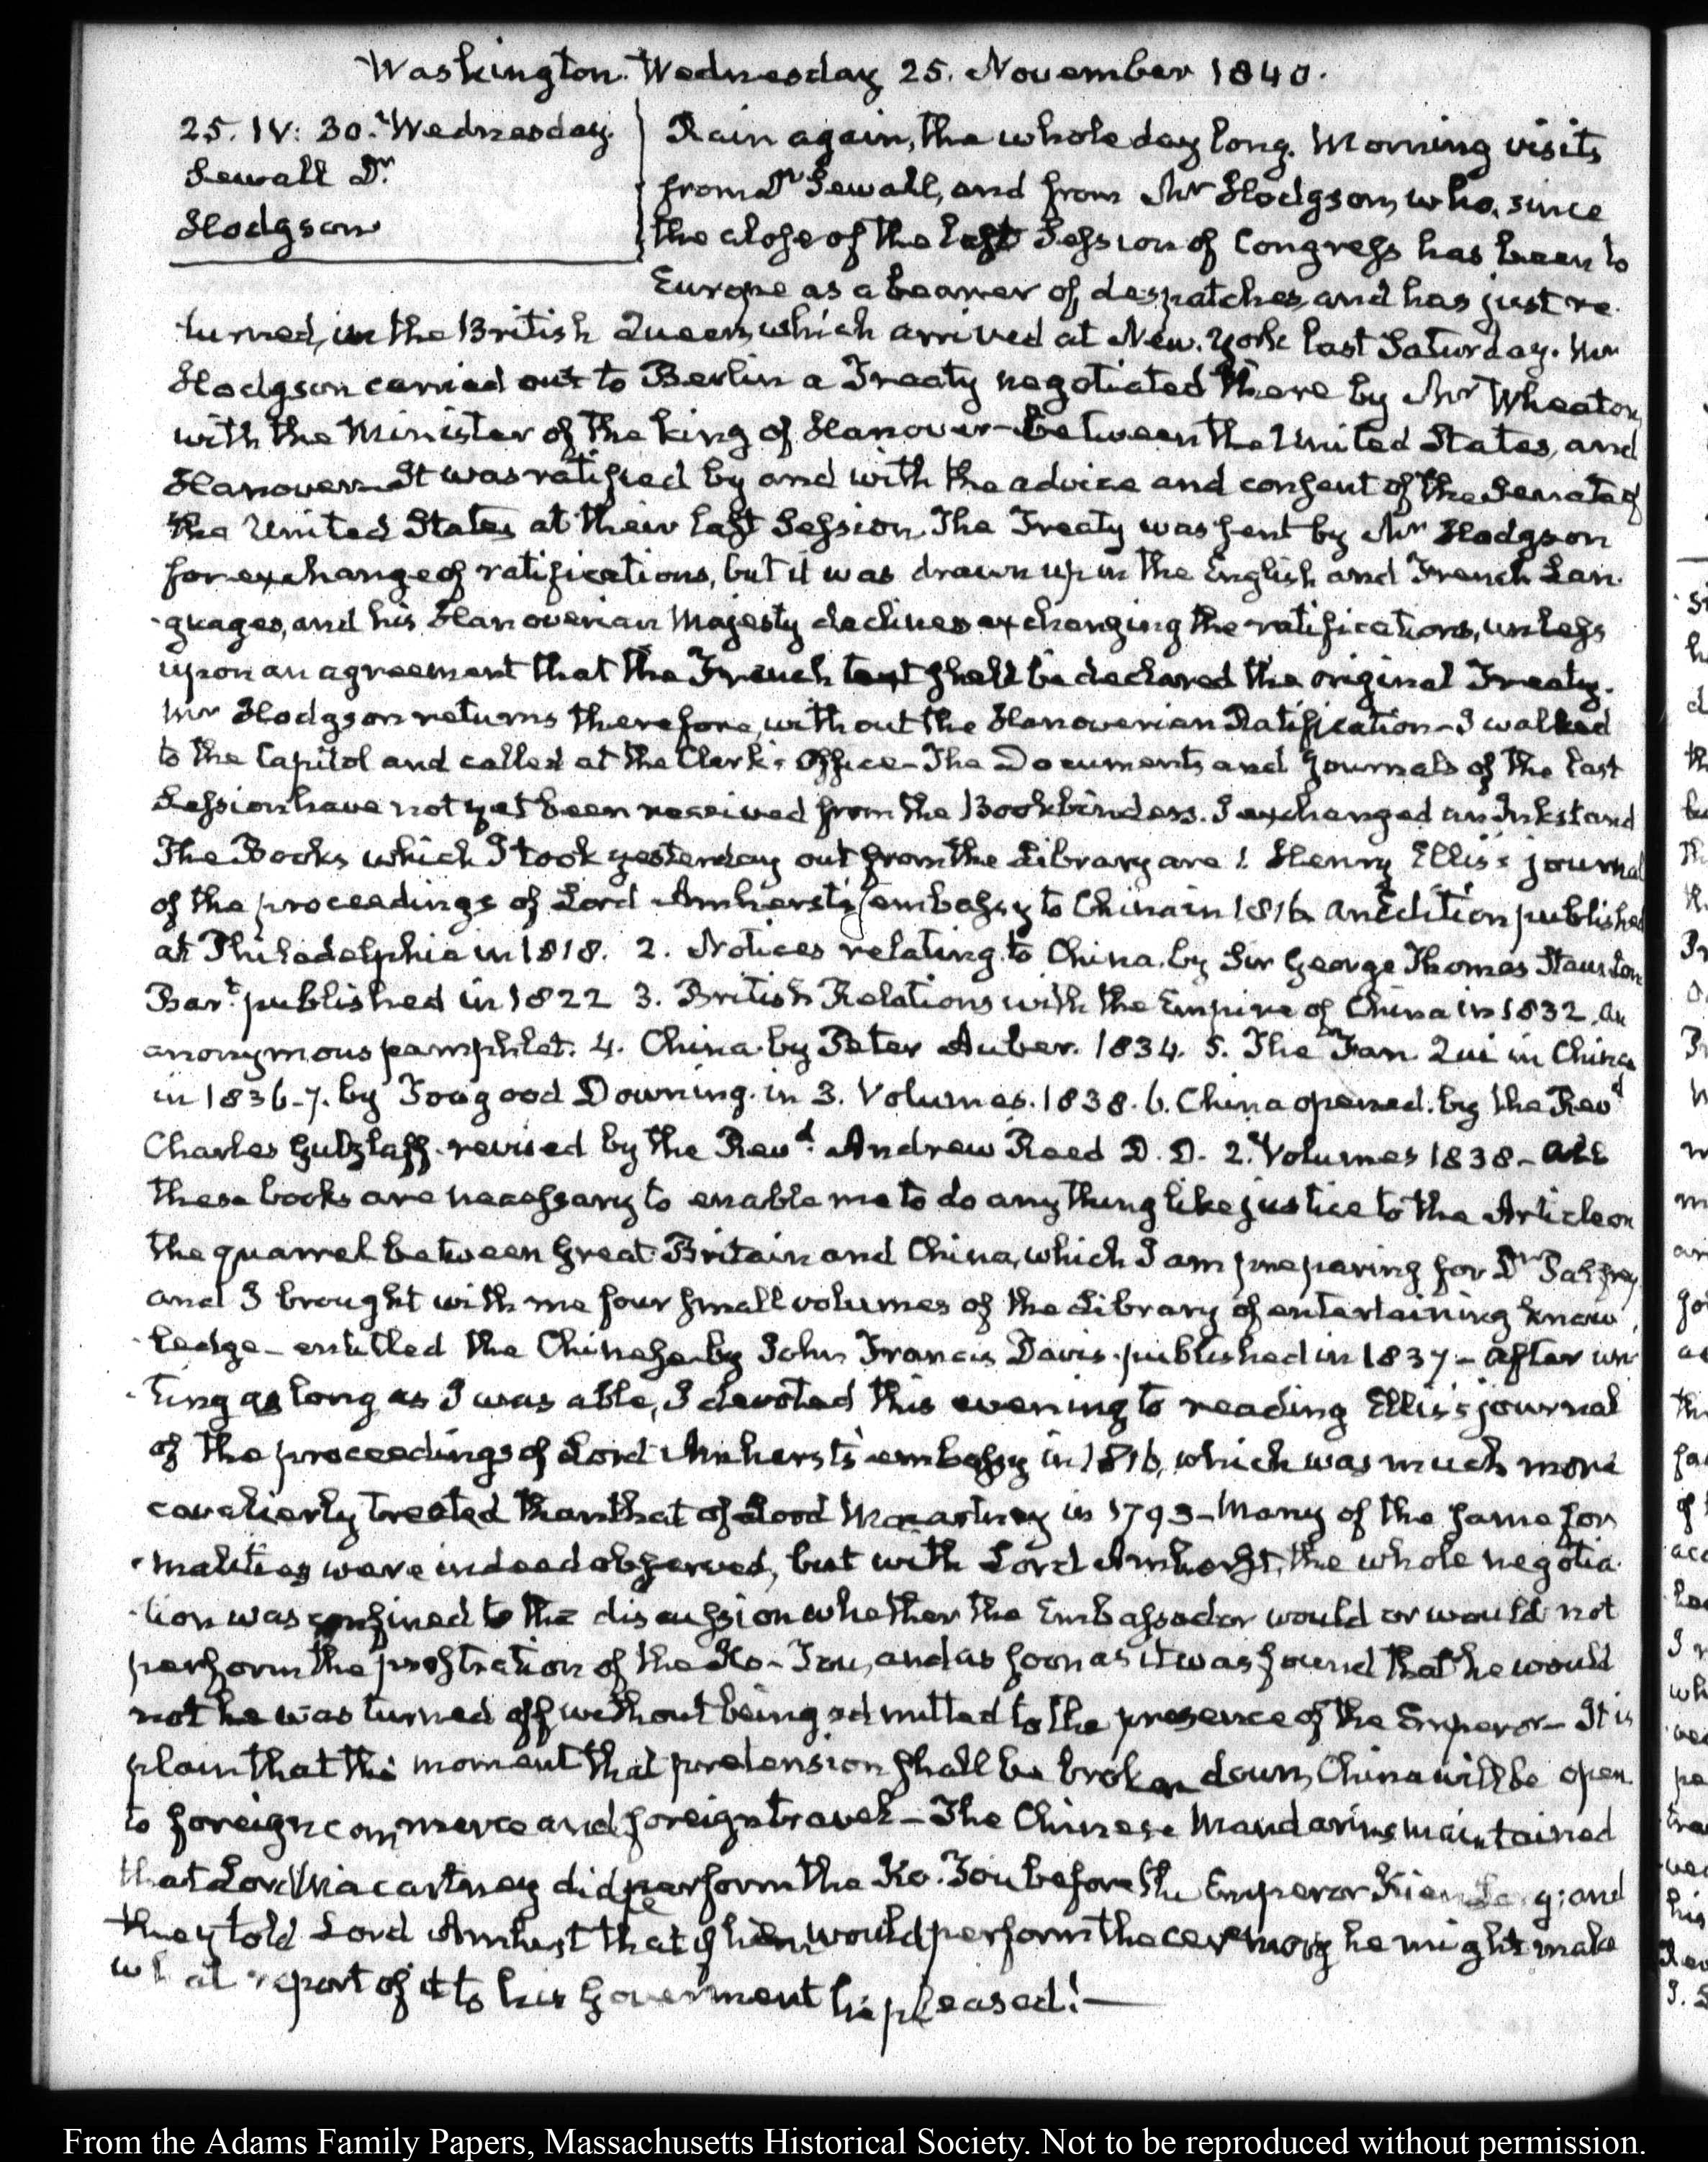 Washington. Wednesday 25. November 1840.
25. IV: 30. Wednesday.
Sewall Dr.
Hodgson
Rain again, the whole day long. Morning visits
from Dr Sewall, and from Mr Hodgson, who, since
the close of the last Session of Congress has been to
Europe as a bearer of despatches and has just re-
turned, in the British Queen, which arrived at New-York last Saturday. Mr
Hodgson carried out to Berlin a Treaty negotiated there by Mr Wheaton,
with the Minister of the king of Hanover between the United States, and
Hanover. It was ratified by and with the advice and consent of the Senate of
the United States at their last Session. The Treaty was sent by Mr Hodgson
for exchange of ratifications, but it was drawn up in the English and French Lan-
guages, and his Hanoverian Majesty declines exchanging the ratifications, unless
upon an agreement that the French text shall be declared the original Treaty.
Mr Hodgson returns therefore, without the Hanoverian Ratification - I walked
to the Capitol and called at the Clerk's Office - The Documents and Journals of the last
Session have not yet been received from the Bookbinders. I exchanged an Inkstand
The Books which I took yesterday out from the Library are 1. Henry Ellis's journal
of the proceedings of Lord Amherst's embassy to China in 1816 an Edition published
at Philadelphia in 1818. 2. Notices relating to China, by Sir George Thomas Staunton
Bart. published in 1822 3. British Relations with the Empire of China in 1832, an
anonymous pamphlet. 4. China by Peter Auber. 1834. 5. The Fan Qui in China
in 1836-7. by Toogood Downing. in 3. Volumes. 1838. 6. China opened. by the Revd
Charles Gutzlaff. revised by the Revd. Andrew Reed D.D. 2. Volumes 1838 - All
these books are necessary to enable me to do any thing like justice to the Article on
the quarrel between Great-Britain and China, which I am preparing for Dr Palfrey
and I brought with me four small volumes of the Library of entertaining know-
ledge - entitled the Chinese by John Francis Davis. published in 1837 - After wri-
ting as long as I was able, I devoted this evening to reading Ellis's journal
of the proceedings of Lord Amherst's embassy in 1816, which was much more
cavalierly treated than that of Lord Macartney in 1793 - Many of the same for-
malities were indeed observed, but with Lord Amherst, the whole negotia-
tion was confined to the discussion whether the Embassador would or would not
perform the prostration of the Ko-Tou, and as soon as it was found that he would
not he was turned off without being admitted to the presence of the Emperor - It is
plain that the moment that pretension shall be broken down, China will be open
to foreign commerce and foreign travel - The Chinese Mandarins maintained
that Lord Macartney did perform the Ko-Tou before the Emperor Kien Long; and
they told Lord Amherst that if he would perform the ceremony he might make
what report of it to his Government he pleased! -
From the Adams Family Papers, Massachusetts Historical Society. Not to be reproduced without permission.